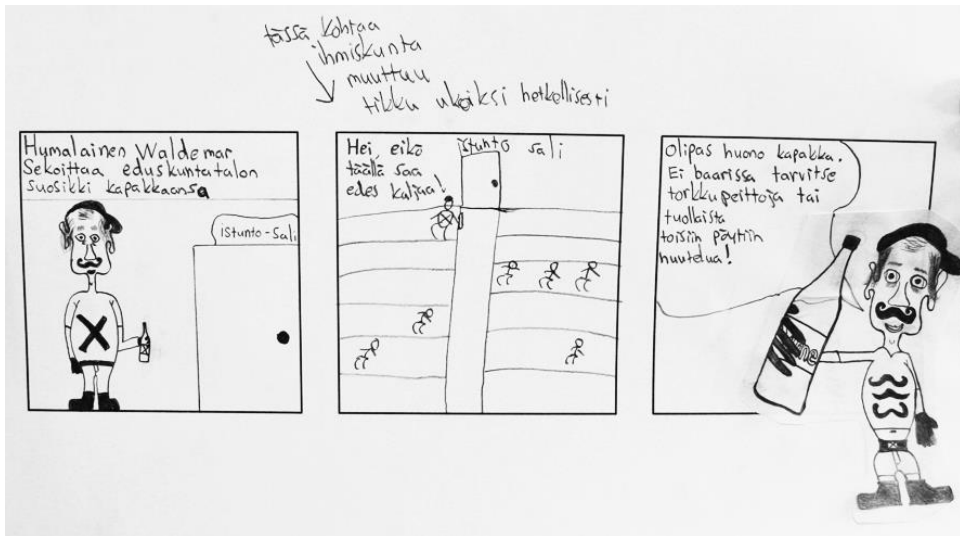 tässä kohtaa
ihmiskunta
muuttuu
tikku ukoiksi hetkellisesti
Humalainen Waldemar
Sekoittaa eduskuntatalon
suosikki kapakkaansa
istunto-sali
Hei, eikö
täällä saa
edes kaljaa!
istunto sali
Olipas huono kapakka.
Ei baarissa tarvitse
torkkupeittoja tai
tuollaista
toisiin pöytiin
huutelua!